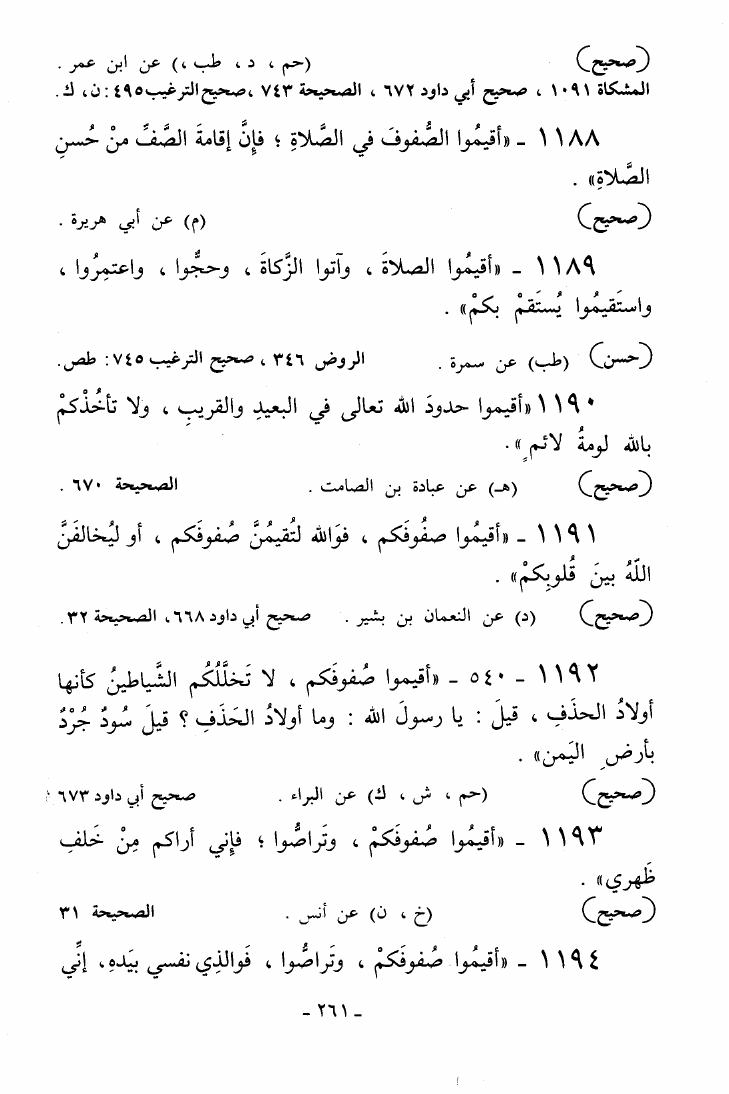 (صحيح) (حم ، د ، طب ،) عن ابن عمر .
المشكاة ١٠٩١ ، صحيح أبي داود ٦٧٢ ، الصحيحة ٧٤٣ ،صحيح الترغيب ٤٩٥ :ن، ك.
١١٨٨ ـ «أقيمُوا الصُّفوفَ في الصَّلاةِ ؛ فإنَّ إقامةَ الصَّفِّ منْ حُسنِ
الصَّلاةِ» .
(صحيح) (م) عن أبي هريرة .
١١٨٩ ـ «أقيمُوا الصلاةَ ، وآتوا الزَّكاةَ ، وحجُّوا ، واعتمِرُوا ،
واستَقيمُوا يُستَقمْ بكمْ» .
(حسن) (طب) عن سمرة . الروض ٣٤٦ ، صحيح الترغيب ٧٤٥: طص.
١١٩٠ «أقيموا حدودَ الله تعالى في البعيدِ والقريبِ ، ولا تأخُذْكمْ
بالله لومةُ لائمٍ» .
(صحيح) (هـ) عن عبادة بن الصامت . الصحيحة ٦٧٠ .
١١٩١ ـ «أقيمُوا صفُوفَكم ، فوَالله لتُقيمُنَّ صُفوفَكم ، أو ليُخالفَنَّ
اللّهُ بينَ قُلوبِكمْ» .
(صحيح) (د) عن النعمان بن بشير . صحيح أبي داود ٦٦٨، الصحيحة ٣٢.
١١٩٢ ـ ٥٤٠ ـ «أقيموا صُفوفَكم ، لا تَخلَّلُكُم الشَّياطينُ كأنها
أولادُ الحذَفِ ، قيلَ : يا رسولَ الله : وما أولادُ الحَذَفِ ؟ قيلَ سُودٌ جُرْدٌ
بأرضِ اليَمن» .
(صحيح) (حم ، ش ، ك) عن البراء . صحيح أبي داود ٦٧٣
١١٩٣ ـ «أقيمُوا صُفوفَكمْ ، وتَراصُّوا ؛ فإني أراكم مِنْ خَلفِ
ظَهري» .
(صحيح) (خ ، ن) عن أنس . الصحيحة ٣١
١١٩٤ ـ «أقيمُوا صُفوفَكمْ ، وتَراصُّوا ، فَوالذِي نفسي بيَدهِ، إنِّي
ـ ٢٦١ ـ